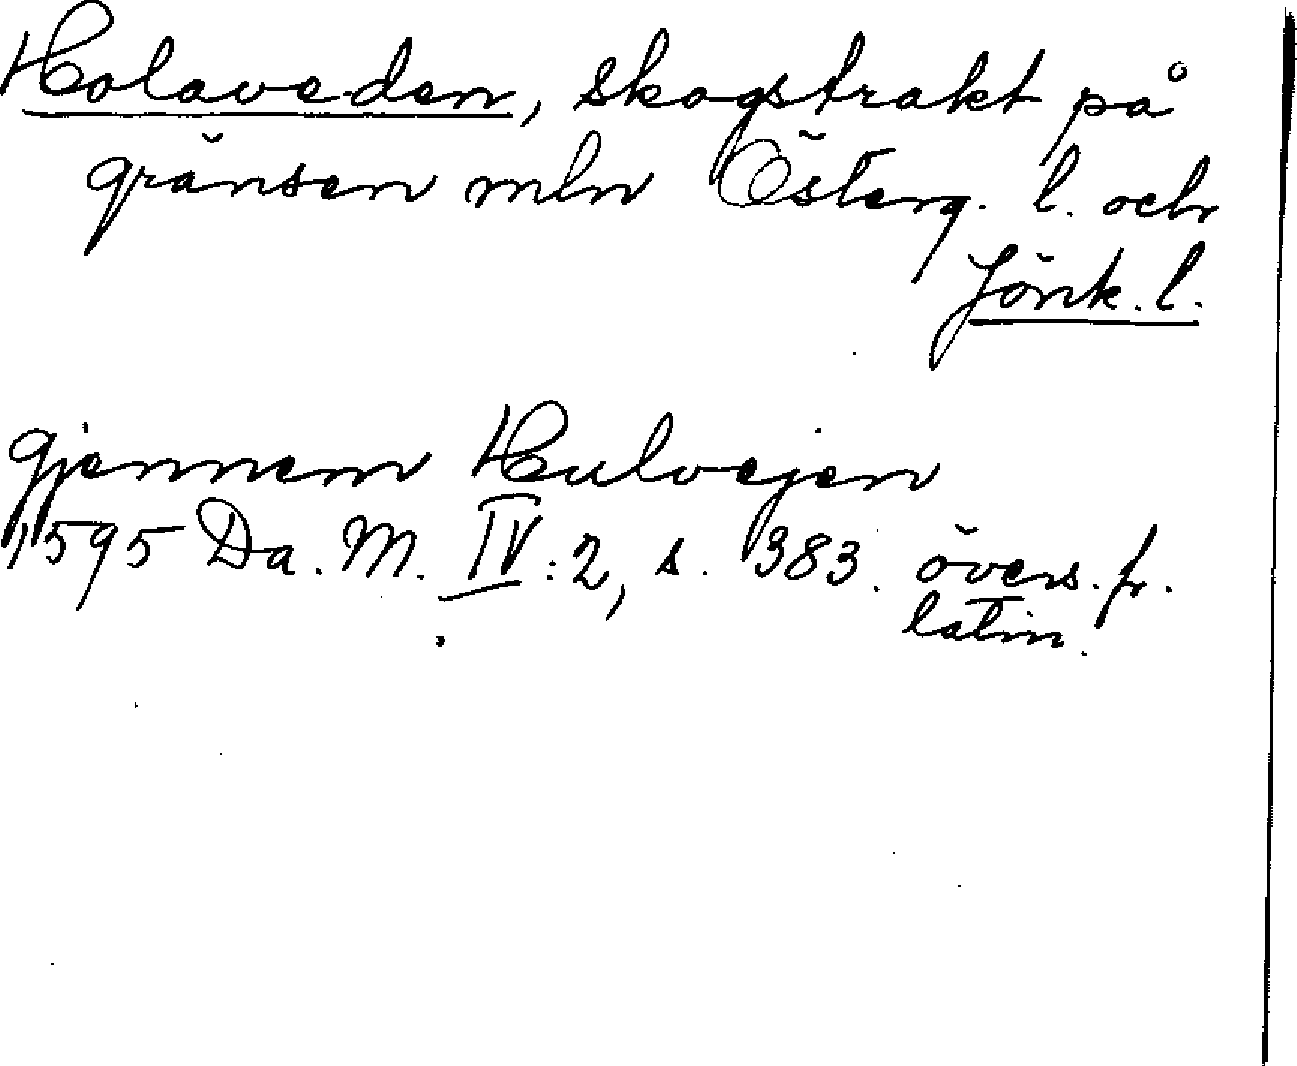 Holaveden, skogstrakt på
gränsen mln Österg. l. och
Jönk. l.
gjennem Hulvejen
1595 Da. M. IV:2, s. 383. övers. fr.
latin.